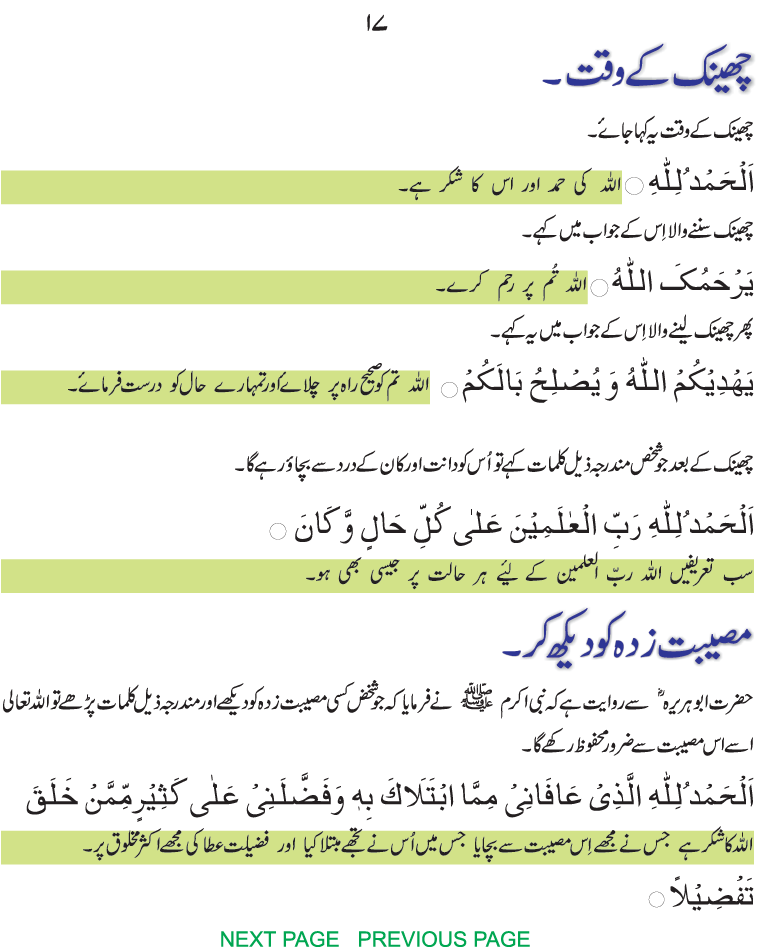 ۱۷
چھینک کے وقت ۔
چھینک کے وقت یہ کہا جائے۔
اَلْحَمْدُ لِلّٰهِ ○ اللہ کی حمد اور اس کا شکر ہے۔
چھینک سننے والا اِس کے جواب میں کہے۔
يَرْحَمُکَ اللّٰهُ ○ اللہ تُم پر رحم کرے۔
پھر چھینک لینے والا اِس کے جواب میں یہ کہے۔
يَهْدِيْكُمْ اللّٰهُ وَ يُصْلِحُ بَالَكُمْ ○ اللہ تم کو صحیح راہ پر چلائے اور تمہارے حال کو درست فرمائے۔
چھینک کے بعد جو شخص مندرجہ ذیل کلمات کہے تو اُس کو دانت اور کان کے درد سے بچاؤ رہے گا۔
اَلْحَمْدُ لِلّٰهِ رَبِّ الْعٰلَمِيْنَ عَلٰى كُلِّ حَالٍ وَّ كَانَ ○
سب تعریفیں اللہ ربّ العٰلمین کے لیٔے ہر حالت پر جیسی بھی ہو۔
مصیبت زدہ کو دیکھ کر ۔
حضرت ابو ہریرہؓ سے روایت ہے کہ نبی اکرم ﷺ نے فرمایا کہ جو شخص کسی مصیبت زدہ کو دیکھے اور مندرجہ ذیل کلمات پڑھے تو اللہ تعالی
اسے اس مصیبت سے ضرور محفوظ رکھے گا۔
اَلْحَمْدُ لِلّٰهِ الَّذِىْ عَافَانِىْ مِمَّا ابْتَلَاكَ بِهٖ وَفَضَّلَنِىْ عَلٰى كَثِيْرٍ مِّمَّنْ خَلَقَ
اللہ کا شکر ہے جس نے مجھے اِس مصیبت سے بچایا جس میں اُس نے تجھے مبتلا کیا اور فضیلت عطا کی مجھے اکثر مخلوق پر۔
تَفْضِيْلاً ○
NEXT PAGE PREVIOUS PAGE